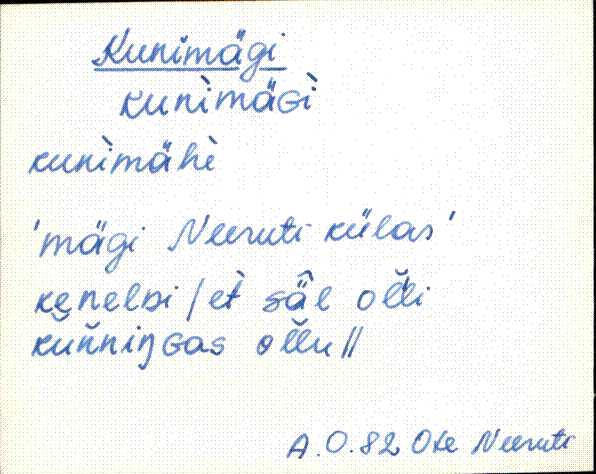 Kunimägi
kunìmäGì
kunìmähè
'mägi Neeruti külas'
kenelDi / èt sä̂l olli
kŭn̆niŋGas ollu //
A.O.82 Ote Neeruti